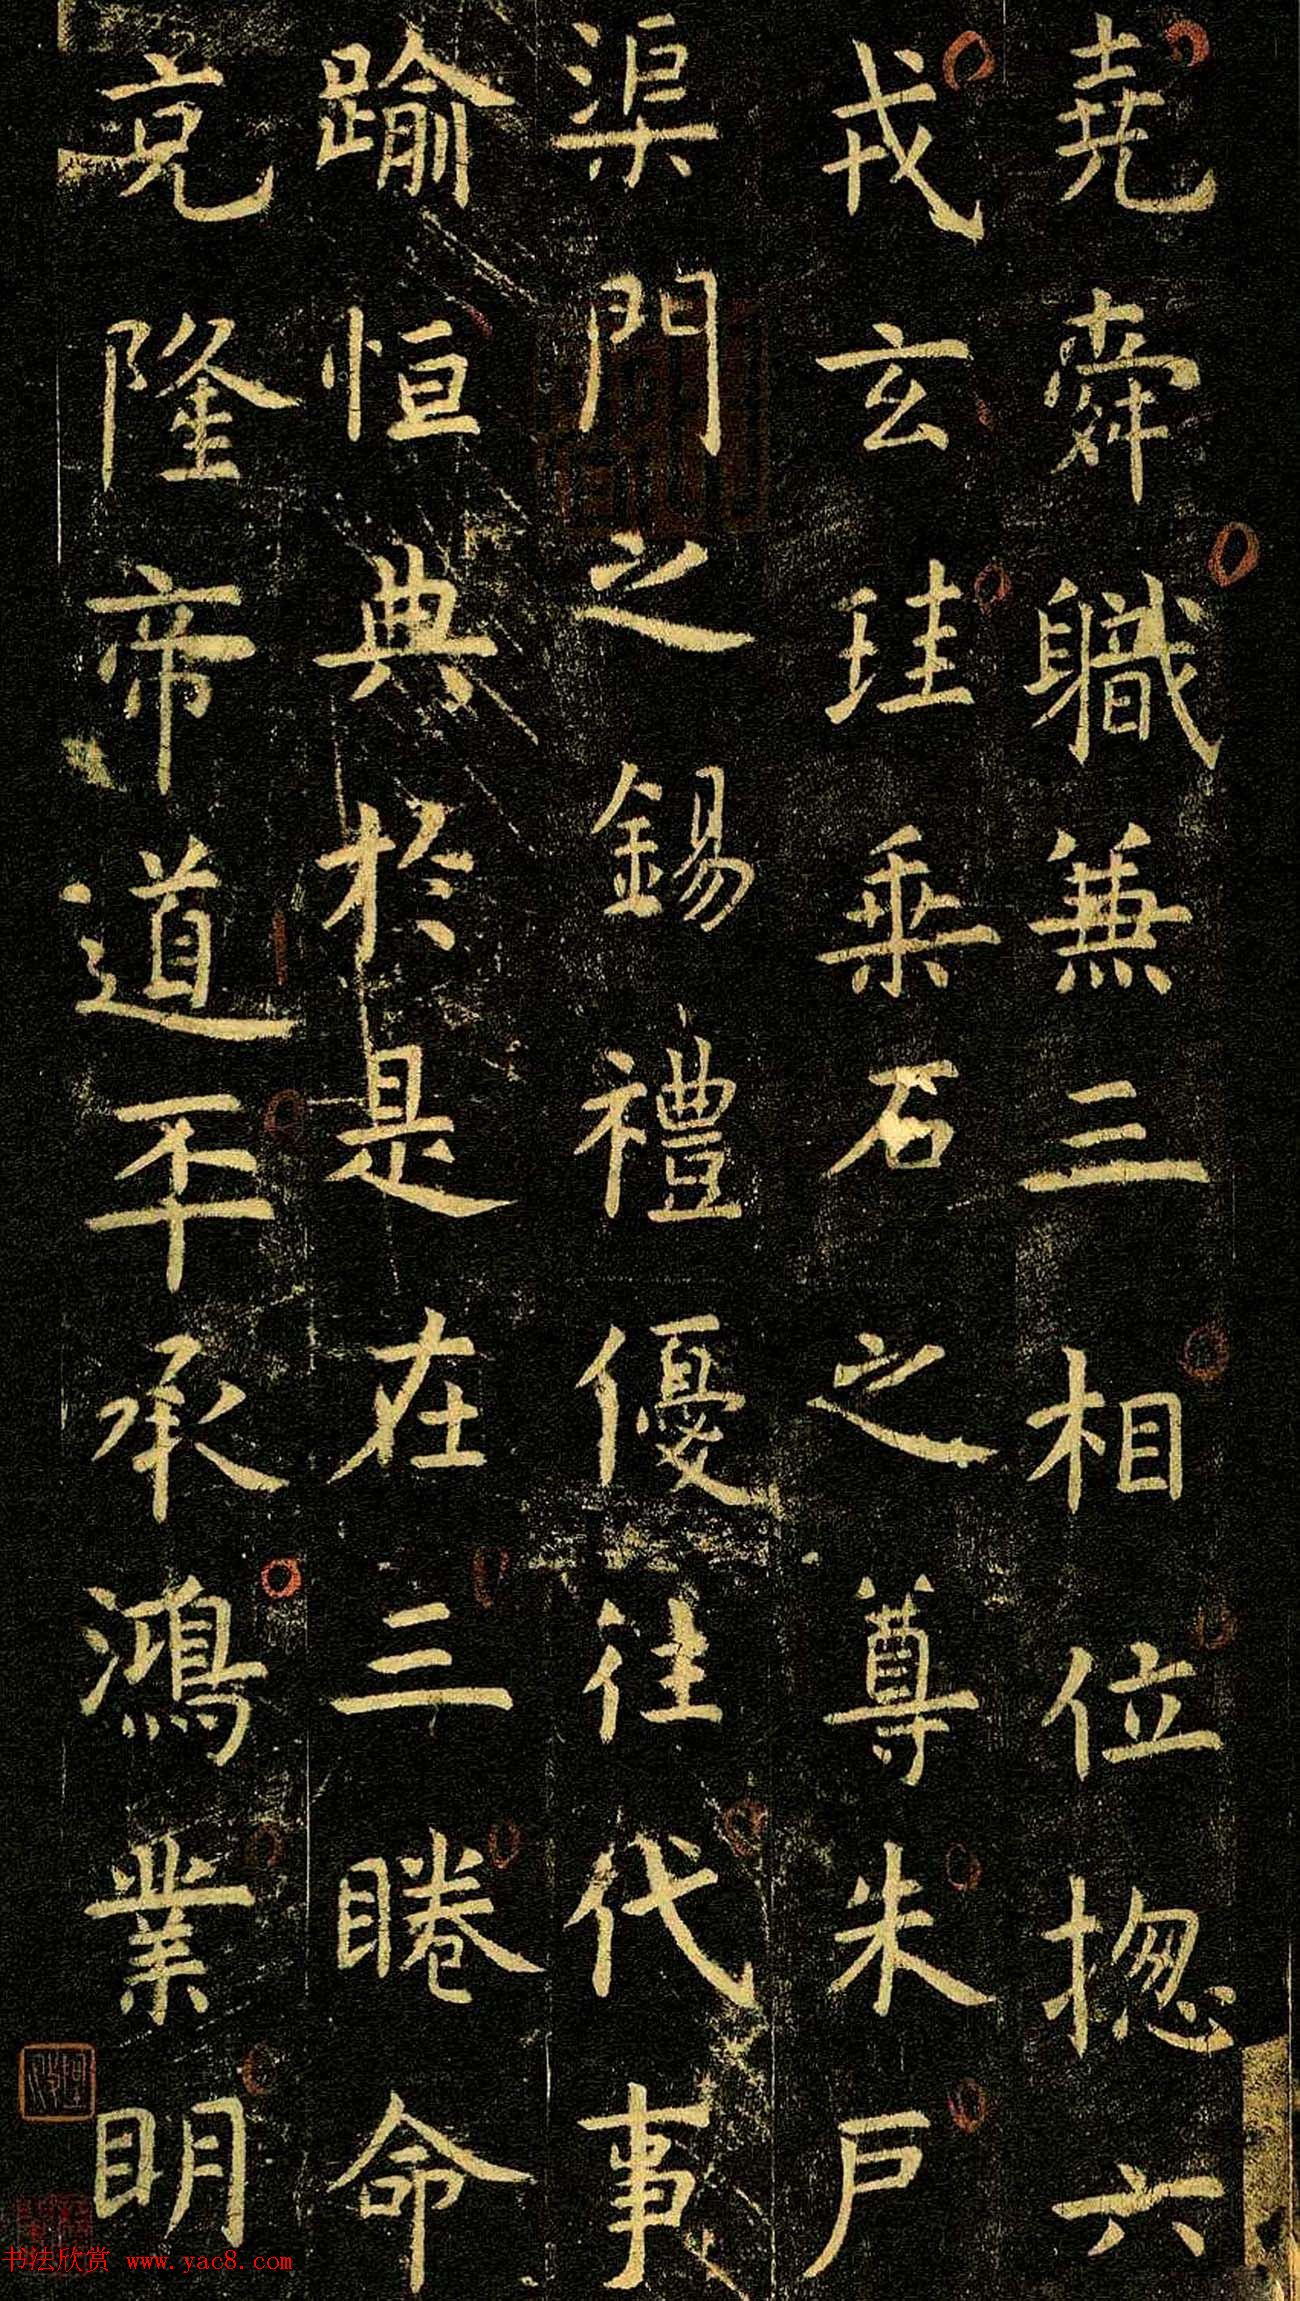 堯舜職兼三相位揔六
戎玄珪乘石之尊朱戶
渠門之錫禮優往代事
踰恒典於是在三睠命
克隆帝道丕承鴻業明
书法欣赏 www.yac8.com